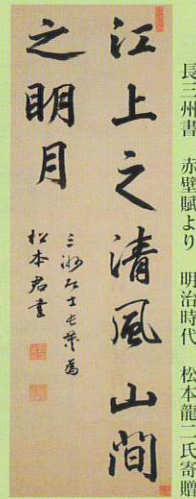 長三州書　赤壁賦より　明治時代　松本龍二氏寄贈
江上之清風山間
之明月
三洲居士長炗為
松本君書